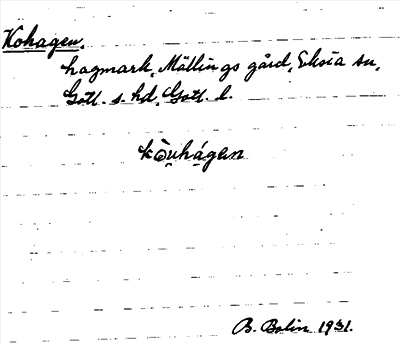 Kohagen.
hagmark, Mällings gård, Eksta sn,
Gotl. s. hd, Gotl. l.
kòu̯hágen
B. Bolin 1931.